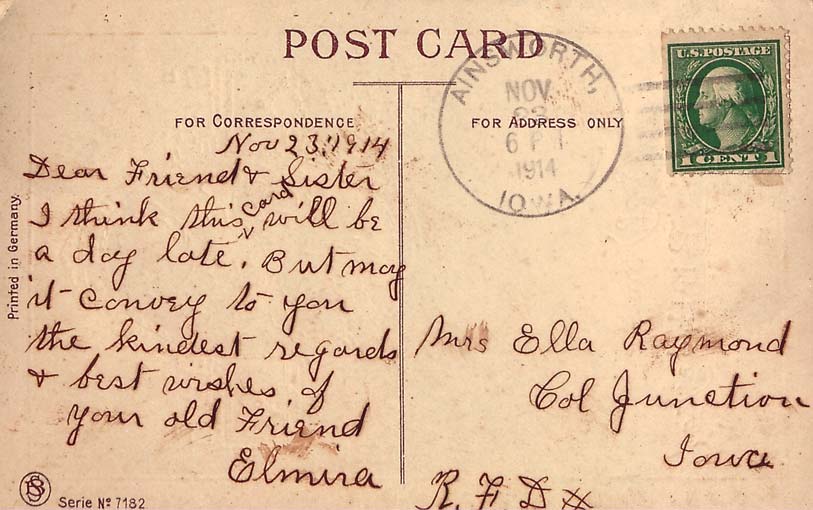 POST CARD
FOR CORRESPONDENCE
Nov 23, 1914
Dear Friend & Sister
I think this card will be
a day late. But may
it convey to you
the kindest regards
& best wishes of
your old Friend
Elmira
Printed in Germany.
Serie No 7182
AINSWORTH,
NOV
6 P
1914
IOWA.
U.S. POSTAGE
1 CENT 1
FOR ADDRESS ONLY
Mrs Ella Raymond
Col Junction
Iowa
R. F. D #